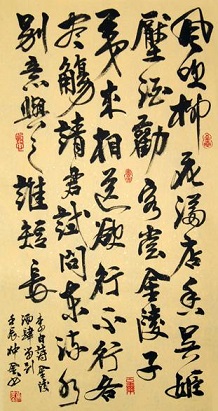 風吹柳花滿店香吳姬
壓酒勸客嘗金陵子
弟來相送欲行不行各
盡觴請君試問東流水
別意與之誰短長
李白詩金陵
酒肆留別
壬辰